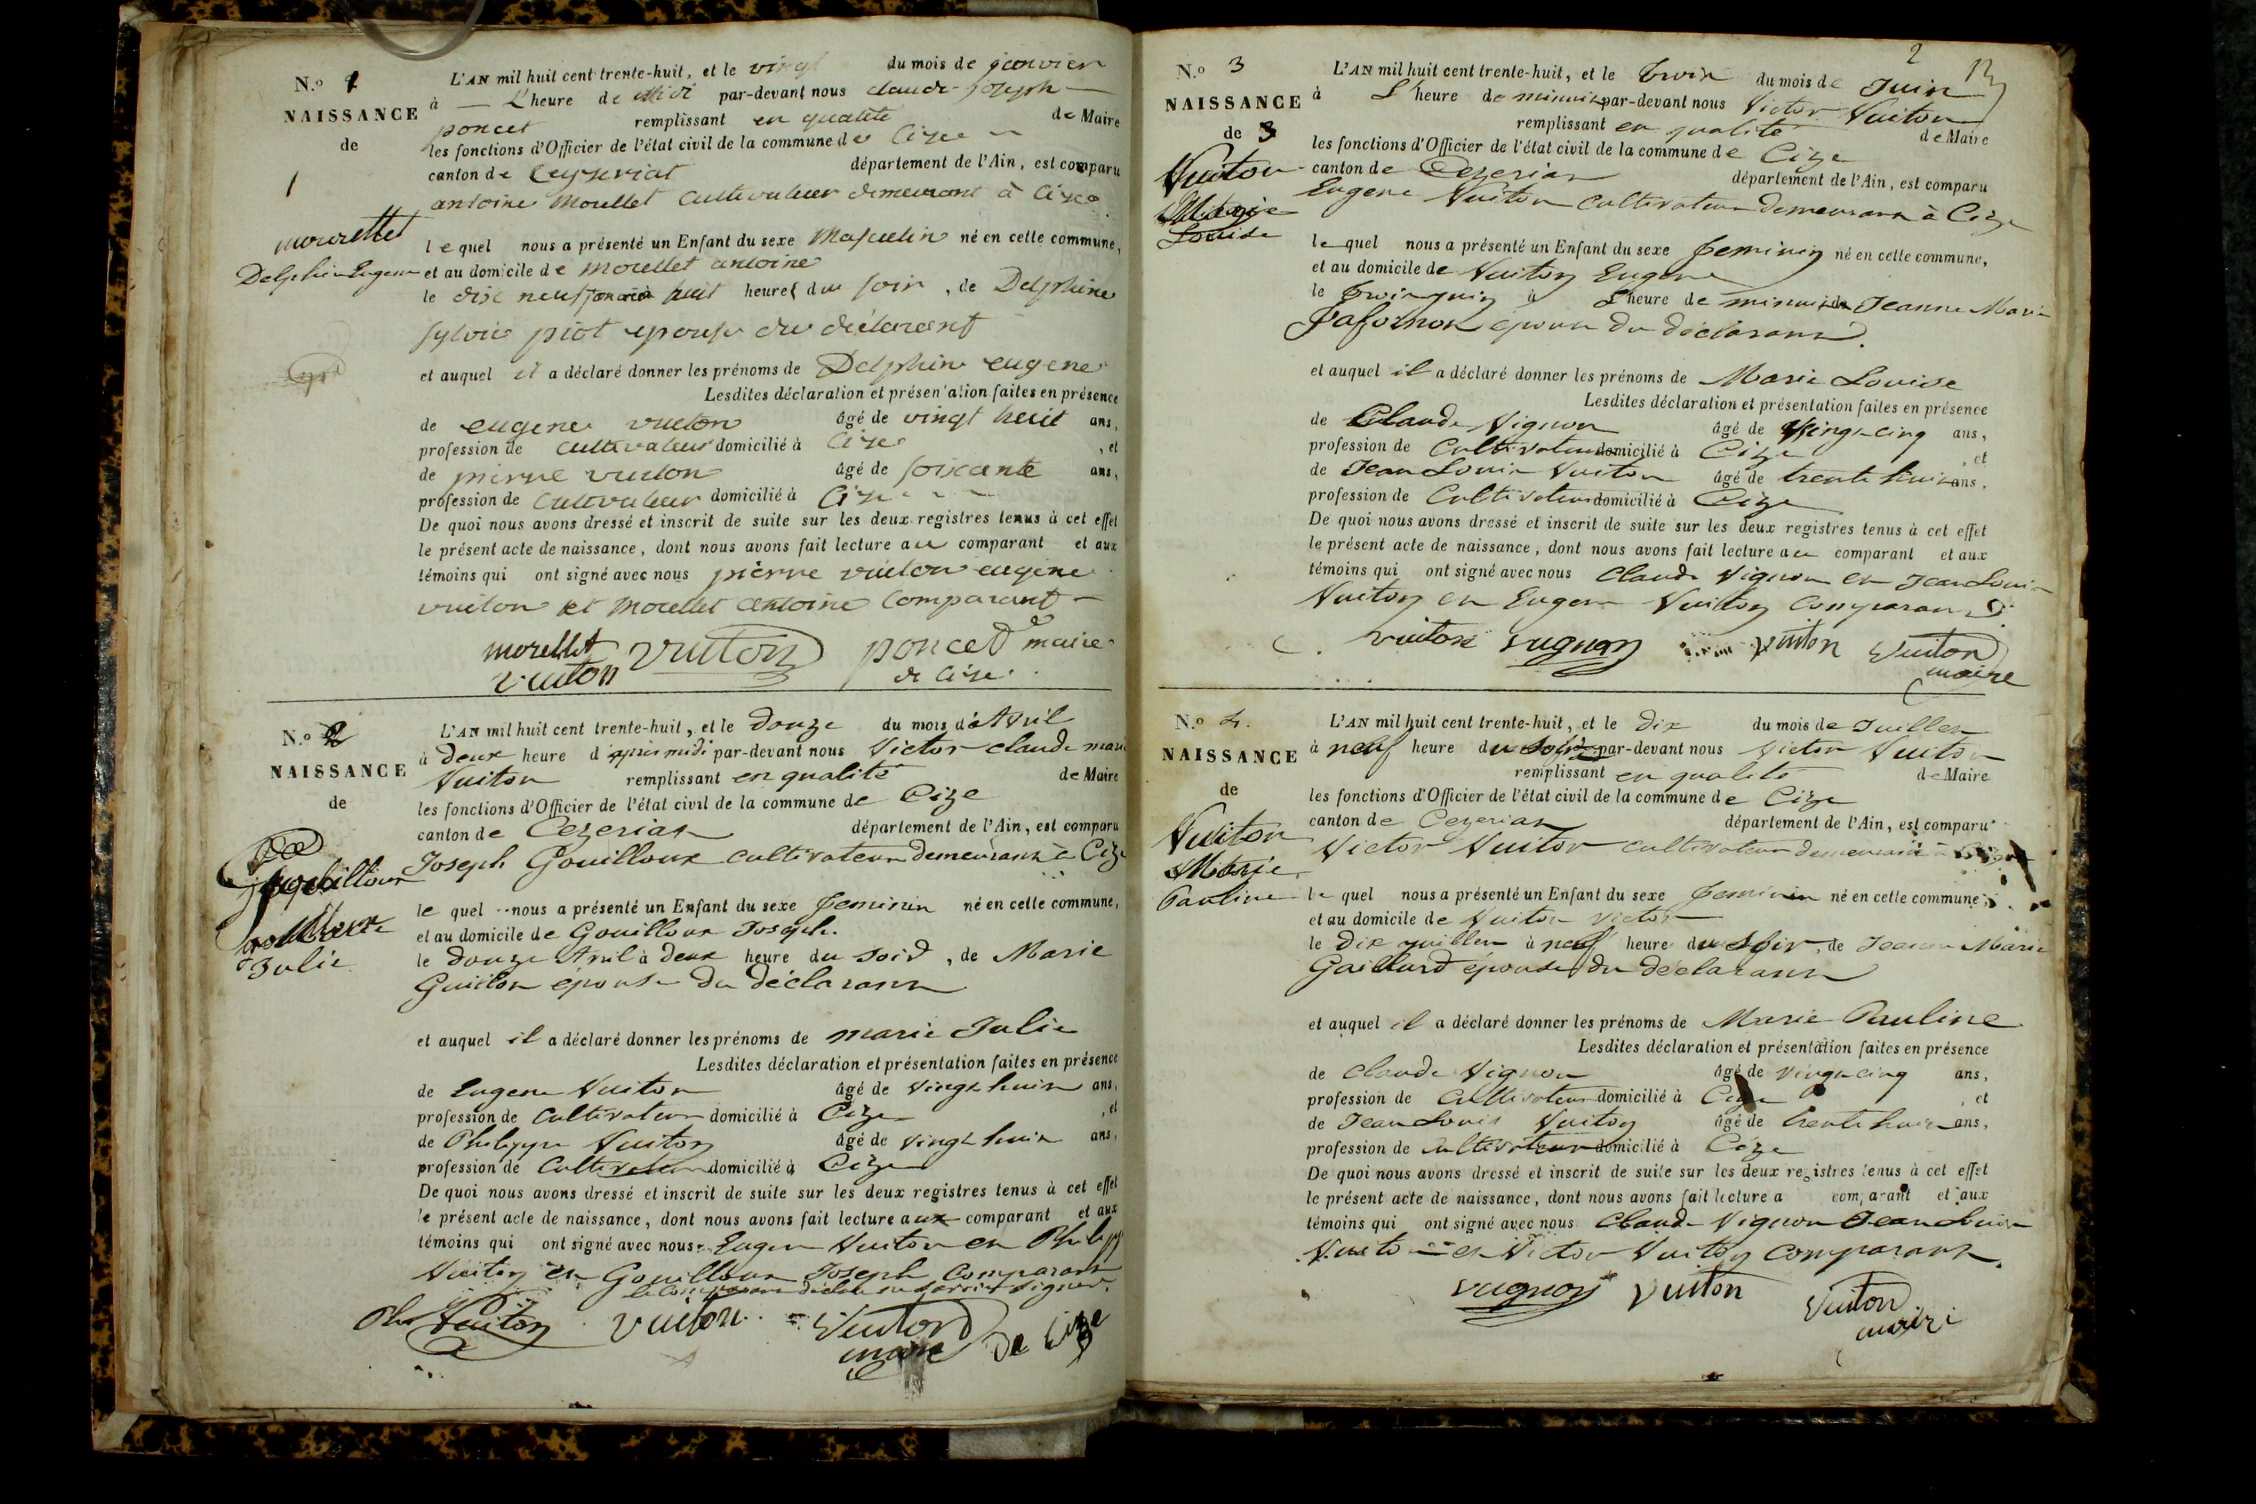 N.o 1
NAISSANCE
de
1
mourettet
Delphin Eugene
L'AN mil huit cent trente-huit, et le vingt du mois de janvier
à — L'heure de Midi par-devant nous claude joseph
poncet remplissant en qualité de Maire
les fonctions d'Officier de l'état civil de la commune de Cize
canton de Ceyseriat département de l'Ain, est comparu
antoine Morellet Cultivateur demeurant à Cize
le quel nous a présenté un Enfant du sexe Masculin né en cette commune,
et au domicile de Morellet antoine
le dix neuf janvier à huit heures du soir, de Delphine
sylvie piot epouse du déclarant
et auquel il a déclaré donner les prénoms de Delphin eugene
Lesdites déclaration et présentation faites en présence
de eugene vuiton âgé de vingt huit ans,
profession de cultivateur domicilié à Cize, et
de pierre vuiton âgé de soixante ans,
profession de Cultivateur domicilié à Cize
De quoi nous avons dressé et inscrit de suite sur les deux registres tenus à cet effet
le présent acte de naissance, dont nous avons fait lecture au comparant et aux
témoins qui ont signé avec nous pierre vuiton eugene
vuiton et Morellet antoine Comparant
morellet vuiton poncet maire
vuiton de Cize
N.o 2
NAISSANCE
de
Gouilloux
Julie
L'AN mil huit cent trente-huit, et le douze du mois d'Avril
à deux heure d'après midi par-devant nous Victor claude marie
Vuiton remplissant en qualité de Maire
les fonctions d'Officier de l'état civil de la commune de Cize
canton de Cezeriat département de l'Ain, est comparu
Joseph Gouilloux cultivateur demeurant à Cize
le quel nous a présenté un Enfant du sexe feminin né en cette commune,
et au domicile de Gouilloux Joseph.
le douze Avril à deux heure du soir, de Marie
Guiton épouse du déclarant
et auquel il a déclaré donner les prénoms de marie Julie
Lesdites déclaration et présentation faites en présence
de Eugene Vuiton âgé de vingt huit ans,
profession de Cultivateur domicilié à Cize, et
de Philippe Vuiton âgé de vingt huit ans,
profession de Cultivateur domicilié à Cize
De quoi nous avons dressé et inscrit de suite sur les deux registres tenus à cet effet
le présent acte de naissance, dont nous avons fait lecture aux comparant et aux
témoins qui ont signé avec nous Eugene Vuiton et Philippe
Vuiton et Gouilloux Joseph Comparant
le Comparant déclare ne savoir signer.
Phe Vuiton vuiton Vuiton
maire de Cize
2
N.o 3
NAISSANCE
de 3
Vuiton
Marie
Louise
L'AN mil huit cent trente-huit, et le trois du mois de Juin
à L'heure de minuit par-devant nous Victor Vuiton
remplissant en qualité de Maire
les fonctions d'Officier de l'état civil de la commune de Cize
canton de Cezeriat département de l'Ain, est comparu
Eugene Vuiton Cultivateur demeurant à Cize
le quel nous a présenté un Enfant du sexe feminin né en cette commune,
et au domicile de Vuiton Eugene
le trois juin à L'heure de minuit de Jeanne Marie
épouse du déclarant.
et auquel il a déclaré donner les prénoms de Marie Louise
Lesdites déclaration et présentation faites en présence
de Claude Vignon âgé de vingt-cinq ans,
profession de Cultivateur domicilié à Cize, et
de Jean Louis Vuiton âgé de trente huit ans,
profession de Cultivateur domicilié à Cize
De quoi nous avons dressé et inscrit de suite sur les deux registres tenus à cet effet
le présent acte de naissance, dont nous avons fait lecture au comparant et aux
témoins qui ont signé avec nous Claude Vignon et Jean Louis
Vuiton et Eugene Vuiton Comparant
vuiton vugnon vuiton Vuiton
maire
N.o 4.
NAISSANCE
de
Vuiton
Marie
Pauline
L'AN mil huit cent trente-huit, et le dix du mois de Juillet
à neuf heure du soir par-devant nous Victor Vuiton
remplissant en qualité de Maire
les fonctions d'Officier de l'état civil de la commune de Cize
canton de Cezeriat département de l'Ain, est comparu
Victor Vuiton cultivateur demeurant à Cize
le quel nous a présenté un Enfant du sexe feminin né en cette commune,
et au domicile de Vuiton Victor
le dix juillet à neuf heure du soir, de Jeanne Marie
Gaillard épouse du déclarant
et auquel il a déclaré donner les prénoms de Marie Pauline
Lesdites déclaration et présentation faites en présence
de Claude Vignon âgé de vingt-cinq ans,
profession de Cultivateur domicilié à Cize, et
de Jean Louis Vuiton âgé de trente huit ans,
profession de cultivateur domicilié à Cize
De quoi nous avons dressé et inscrit de suite sur les deux registres tenus à cet effet
le présent acte de naissance, dont nous avons fait lecture a comparant et aux
témoins qui ont signé avec nous Claude Vignon Jean Louis
Vuiton et Victor Vuiton comparant.
vugnon vuiton Vuiton
maire